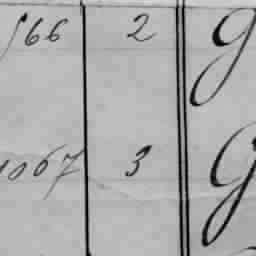 566 2 G
1067 3 G